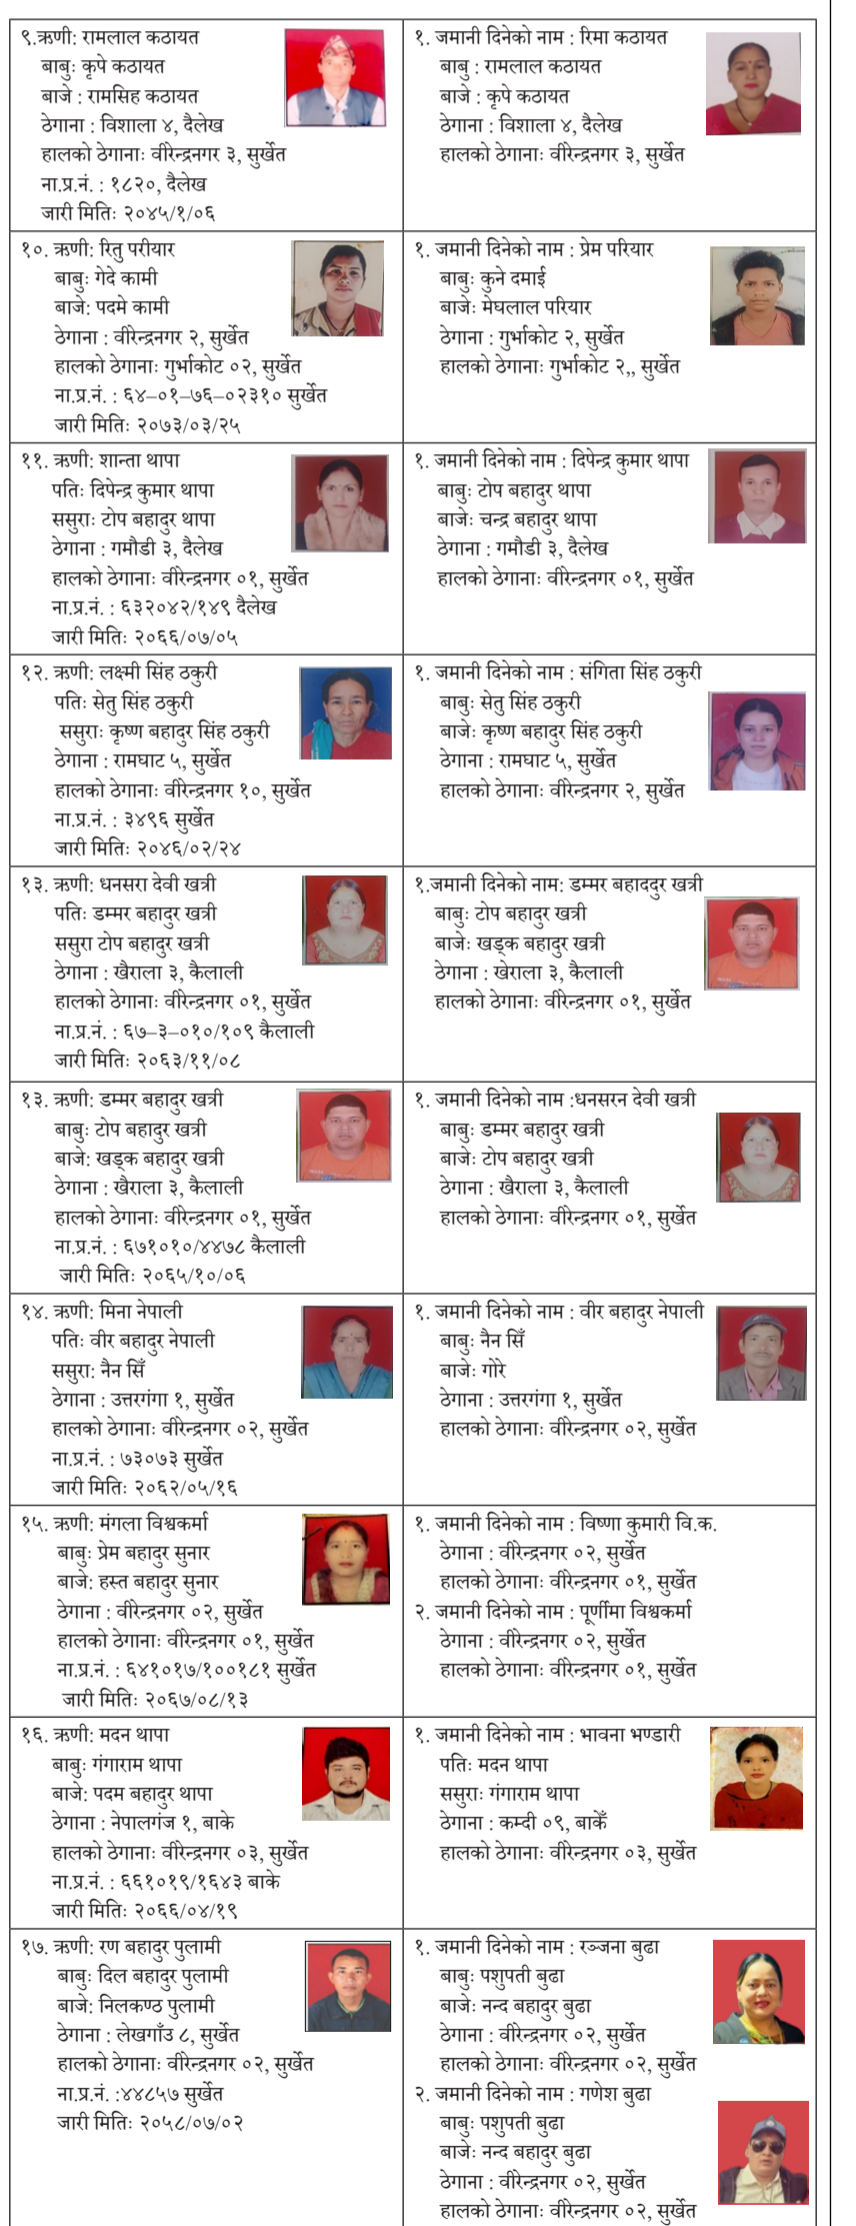 ९.ऋणी: रामलाल कठायत
बाबुः कृपे कठायत
बाजे : रामसिह कठायत
ठेगाना : विशाला ४, दैलेख
हालको ठेगानाः वीरेन्द्रनगर ३, सुर्खेत
ना.प्र.नं. : १८२०, दैलेख
जारी मितिः २०४५/१/०६
१. जमानी दिनेको नाम : रिमा कठायत
बाबु : रामलाल कठायत
बाजे : कृपे कठायत
ठेगाना : विशाला ४, दैलेख
हालको ठेगानाः वीरेन्द्रनगर ३, सुर्खेत
१०. ऋणी: रितु परीयार
बाबुः गेदे कामी
बाजे: पदमे कामी
ठेगाना : वीरेन्द्रनगर २, सुर्खेत
हालको ठेगानाः गुर्भाकोट ०२, सुर्खेत
ना.प्र.नं. : ६४–०१–७६–०२३१० सुर्खेत
जारी मितिः २०७३/०३/२५
१. जमानी दिनेको नाम : प्रेम परियार
बाबुः कुने दमाई
बाजेः मेघलाल परियार
ठेगाना : गुर्भाकोट २, सुर्खेत
हालको ठेगानाः गुर्भाकोट २,, सुर्खेत
११. ऋणी: शान्ता थापा
पतिः दिपेन्द्र कुमार थापा
ससुराः टोप बहादुर थापा
ठेगाना : गमौडी ३, दैलेख
हालको ठेगानाः वीरेन्द्रनगर ०१, सुर्खेत
ना.प्र.नं. : ६३२०४२/१४९ दैलेख
जारी मितिः २०६६/०७/०५
१. जमानी दिनेको नाम : दिपेन्द्र कुमार थापा
बाबुः टोप बहादुर थापा
बाजेः चन्द्र बहादुर थापा
ठेगाना : गमौडी ३, दैलेख
हालको ठेगानाः वीरेन्द्रनगर ०१, सुर्खेत
१२. ऋणी: लक्ष्मी सिंह ठकुरी
पतिः सेतु सिंह ठकुरी
ससुराः कृष्ण बहादुर सिंह ठकुरी
ठेगाना : रामघाट ५, सुर्खेत
हालको ठेगानाः वीरेन्द्रनगर १०, सुर्खेत
ना.प्र.नं. : ३४९६ सुर्खेत
जारी मितिः २०४६/०२/२४
१. जमानी दिनेको नाम : संगिता सिंह ठकुरी
बाबुः सेतु सिंह ठकुरी
बाजेः कृष्ण बहादुर सिंह ठकुरी
ठेगाना : रामघाट ५, सुर्खेत
हालको ठेगानाः वीरेन्द्रनगर २, सुर्खेत
१३. ऋणी: धनसरा देवी खत्री
पतिः डम्मर बहादुर खत्री
ससुरा टोप बहादुर खत्री
ठेगाना : खैराला ३, कैलाली
हालको ठेगानाः वीरेन्द्रनगर ०१, सुर्खेत
ना.प्र.नं. : ६७–३–०१०/१०९ कैलाली
जारी मितिः २०६३/११/०८
१.जमानी दिनेको नाम: डम्मर बहाददुर खत्री
बाबुः टोप बहादुर खत्री
बाजेः खड्क बहादुर खत्री
ठेगाना : खेराला ३, कैलाली
हालको ठेगानाः वीरेन्द्रनगर ०१, सुर्खेत
१३. ऋणी: डम्मर बहादुर खत्री
बाबुः टोप बहादुर खत्री
बाजे: खड्क बहादुर खत्री
ठेगाना : खैराला ३, कैलाली
हालको ठेगानाः वीरेन्द्रनगर ०१, सुर्खेत
ना.प्र.नं. : ६७१०१०/४४७८ कैलाली
जारी मितिः २०६५/१०/०६
१. जमानी दिनेको नाम :धनसरन देवी खत्री
बाबुः डम्मर बहादुर खत्री
बाजेः टोप बहादुर खत्री
ठेगाना : खैराला ३, कैलाली
हालको ठेगानाः वीरेन्द्रनगर ०१, सुर्खेत
१४. ऋणी: मिना नेपाली
पतिः वीर बहादुर नेपाली
ससुरा: नैन सिँ
ठेगाना : उत्तरगंगा १, सुर्खेत
हालको ठेगानाः वीरेन्द्रनगर ०२, सुर्खेत
ना.प्र.नं. : ७३०७३ सुर्खेत
जारी मितिः २०६२/०५/१६
१. जमानी दिनेको नाम : वीर बहादुर नेपाली
बाबुः नैन सिँ
बाजेः गोरे
ठेगाना : उत्तरगंगा १, सुर्खेत
हालको ठेगानाः वीरेन्द्रनगर ०२, सुर्खेत
१५. ऋणी: मंगला विश्वकर्मा
बाबुः प्रेम बहादुर सुनार
बाजे: हस्त बहादुर सुनार
ठेगाना : वीरेन्द्रनगर ०२, सुर्खेत
हालको ठेगानाः वीरेन्द्रनगर ०१, सुर्खेत
ना.प्र.नं. : ६४१०१७/१००१८१ सुर्खेत
जारी मितिः २०६७/०८/१३
१. जमानी दिनेको नाम : विष्णा कुमारी वि.क.
ठेगाना : वीरेन्द्रनगर ०२, सुर्खेत
हालको ठेगानाः वीरेन्द्रनगर ०१, सुर्खेत
२. जमानी दिनेको नाम : पूर्णीमा विश्वकर्मा
ठेगाना : वीरेन्द्रनगर ०२, सुर्खेत
हालको ठेगानाः वीरेन्द्रनगर ०१, सुर्खेत
१६. ऋणी: मदन थापा
बाबुः गंगाराम थापा
बाजे: पदम बहादुर थापा
ठेगाना : नेपालगंज १, बाके
हालको ठेगानाः वीरेन्द्रनगर ०३, सुर्खेत
ना.प्र.नं. : ६६१०१९/१६४३ बाके
जारी मितिः २०६६/०४/१९
१. जमानी दिनेको नाम : भावना भण्डारी
पतिः मदन थापा
ससुराः गंगाराम थापा
ठेगाना : कम्दी ०९, बाकेँ
हालको ठेगानाः वीरेन्द्रनगर ०३, सुर्खेत
१७. ऋणी: रण बहादुर पुलामी
बाबुः दिल बहादुर पुलामी
बाजे: निलकण्ठ पुलामी
ठेगाना : लेखगाँउ ८, सुर्खेत
हालको ठेगानाः वीरेन्द्रनगर ०२, सुर्खेत
ना.प्र.नं. :४४८५७ सुर्खेत
जारी मितिः २०५८/०७/०२
१. जमानी दिनेको नाम : रञ्जना बुढा
बाबुः पशुपती बुढा
बाजेः नन्द बहादुर बुढा
ठेगाना : वीरेन्द्रनगर ०२, सुर्खेत
हालको ठेगानाः वीरेन्द्रनगर ०२, सुर्खेत
२. जमानी दिनेको नाम : गणेश बुढा
बाबुः पशुपती बुढा
बाजेः नन्द बहादुर बुढा
ठेगाना : वीरेन्द्रनगर ०२, सुर्खेत
हालको ठेगानाः वीरेन्द्रनगर ०२, सुर्खेत